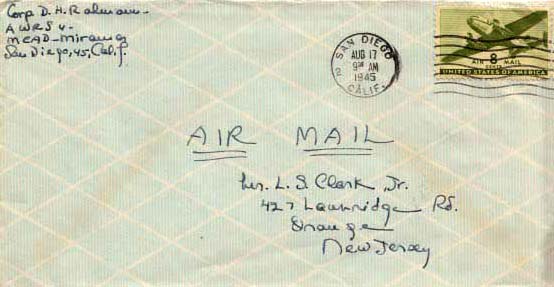 Corp. D. H. Rahmann -
AWRS 4 -
MCAD - Miramar
San Diego, 45, Calif.
SAN DIEGO
2
AUG 17
9 AM
1945
CALIF.
AIR 8 MAIL
CENTS
UNITED STATES OF AMERICA
AIR MAIL
L. S. Clark, Jr.
427 Lawnridge Rd.
Orange
New Jersey